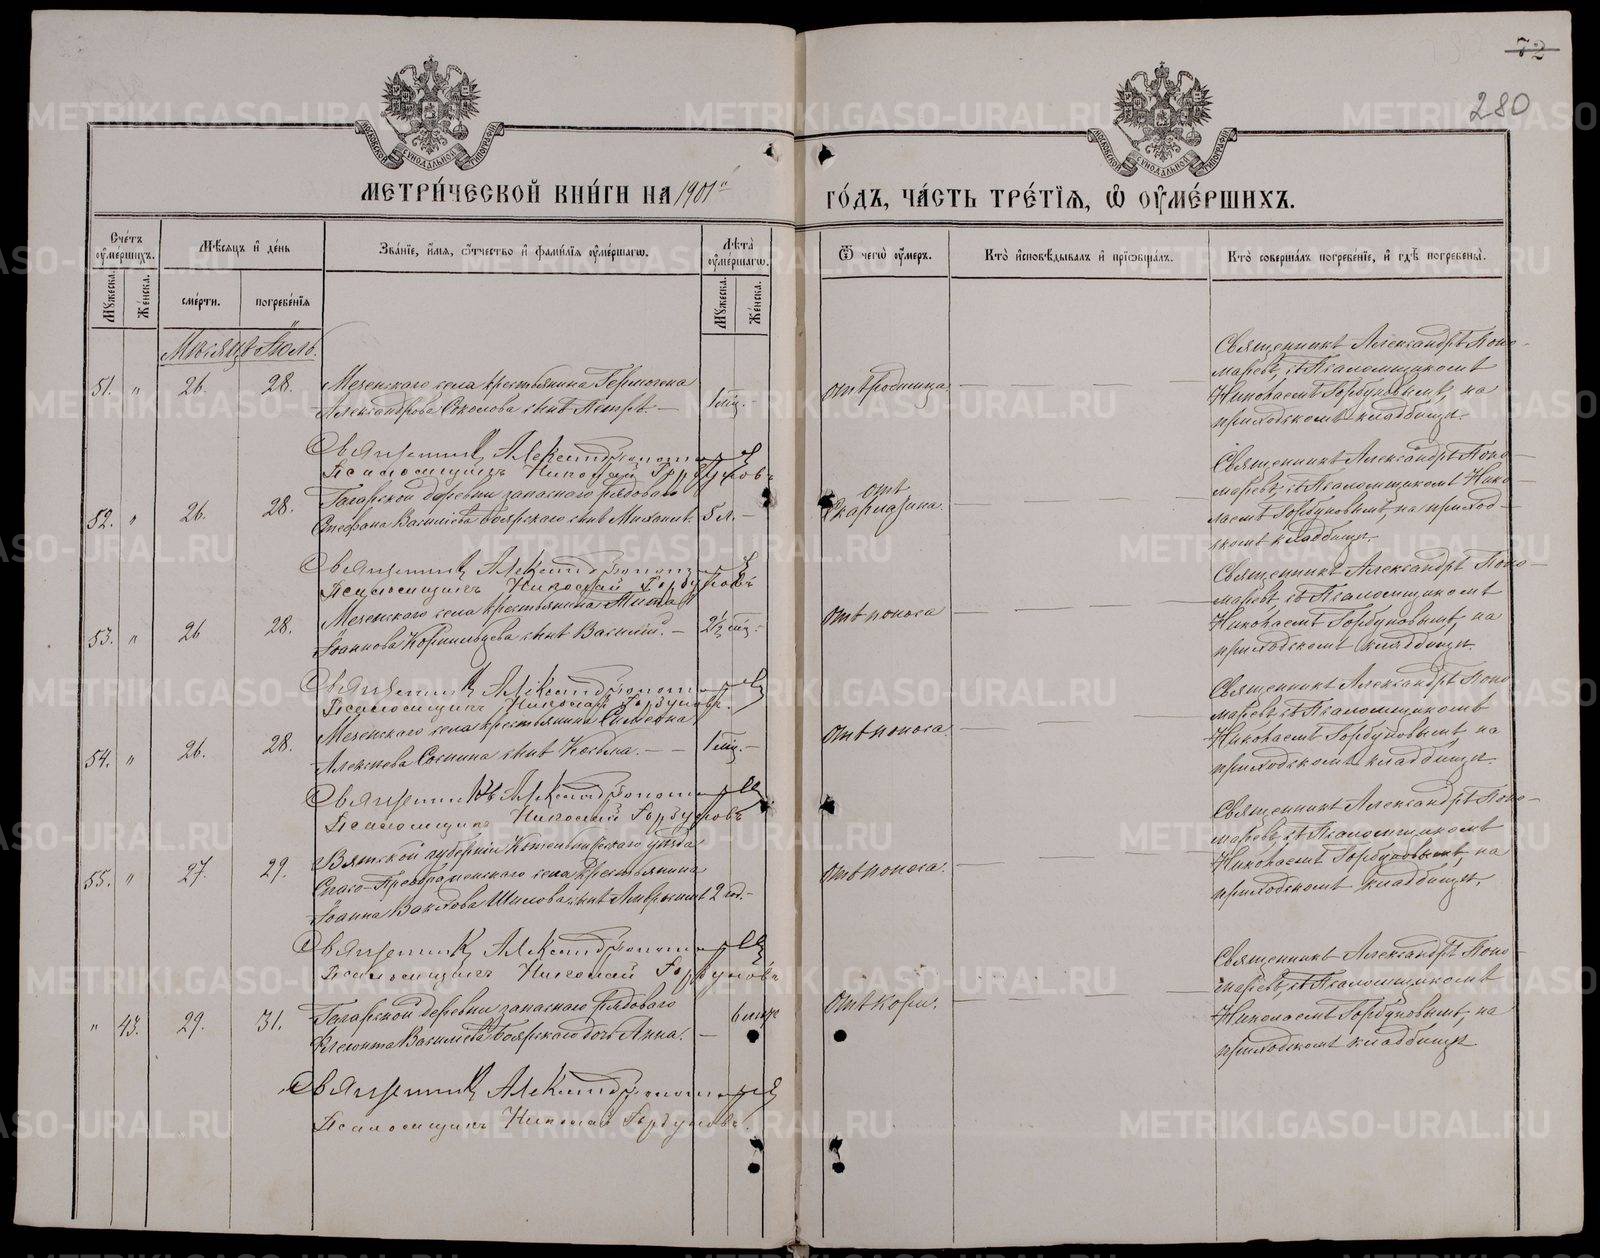 72
280
МОСКОВСКОЙ СУНОДАЛЬНОЙ ТИПОГРАФІИ
МОСКОВСКОЙ СУНОДАЛЬНОЙ ТИПОГРАФІИ
МЕТРИ́ЧЕСКОЙ КНИ́ГИ НА 1901й ГО́ДЪ, ЧА́СТЬ ТРЕ́ТІѦ, Ѡ ОУМЕ́РШИХЪ.
Сче́тъ оуме́ршихъ.
Мѣ́сяцъ и де́нь
Зва́ніе, и́мя, о́тчество и фами́лія оуме́ршагѡ.
Лѣ́та оуме́ршагѡ.
Ѿ чегѡ̀ оу́меръ.
Кто̀ исповѣ́дывалъ и пріѡбща́лъ.
Кто̀ соверша́лъ погребе́ніе, и гдѣ̀ погребены̀.
Мꙋжеска.
Же́нска.
сме́рти.
погребе́нія
Мꙋжеска.
Же́нска.
Мѣсяцъ Іюль.
51. " 26. 28. Мезенскаго села крестьянина Гермогена
Александрова Соколова сынъ Петръ. — 1 мѣс. —
отъ родимца
Священникъ Александръ Поно-
маревъ, съ Псаломщикомъ
Николаемъ Горбуновымъ, на
приходскомъ кладбищѣ.
Священникъ Александръ Пономаревъ
Псаломщикъ Николай Горбуновъ
52. " 26. 28. Гагарской деревни запаснаго рядоваго
Стефана Васильева Боярскаго сынъ Михаилъ. 5 л. —
отъ
скарлатина.
Священникъ Александръ Поно-
маревъ, съ Псаломщикомъ Нико-
лаемъ Горбуновымъ, на приход-
скомъ кладбищѣ.
Священникъ Александръ Пономаревъ
Псаломщикъ Николай Горбуновъ
53. " 26 28. Мезенскаго села крестьянина
Іоаннова Корнильцева сынъ Василій. — 2½ мѣс. —
отъ поноса
Священникъ Александръ Поно-
маревъ, съ Псаломщикомъ
Николаемъ Горбуновымъ, на
приходскомъ кладбищѣ.
Священникъ Александръ Пономаревъ
Псаломщикъ Николай Горбуновъ.
54. " 26. 28. Мезенскаго села крестьянина Симеона
Алексѣева Соснина сынъ Косьма. — — 1 мѣс. —
отъ поноса.
Священникъ Александръ Поно-
маревъ съ Псаломщикомъ
Николаемъ Горбуновымъ, на
приходскомъ кладбищѣ.
Священникъ Александръ Пономаревъ
Псаломщикъ Николай Горбуновъ
55. " 27. 29. Вятской губерніи Котельническаго уѣзда
Спасо-Преображенскаго села крестьянина
Іоанна Вахова Шилова сынъ Амвросій 2 год. —
отъ поноса.
Священникъ Александръ Поно-
маревъ съ Псаломщикомъ
Николаемъ Горбуновымъ, на
приходскомъ кладбищѣ.
Священникъ Александръ Пономаревъ
Псаломщикъ Николай Горбуновъ
" 43. 29. 31. Гагарской деревни запаснаго рядоваго
Васильева Боярскаго дочь Анна. — 6
отъ кори.
Священникъ Александръ Поно-
маревъ, съ Псаломщикомъ
Николаемъ Горбуновымъ, на
приходскомъ кладбищѣ
Священникъ Александръ Пономаревъ
Псаломщикъ Николай Горбуновъ.
METRIKI.GASO-URAL.RU